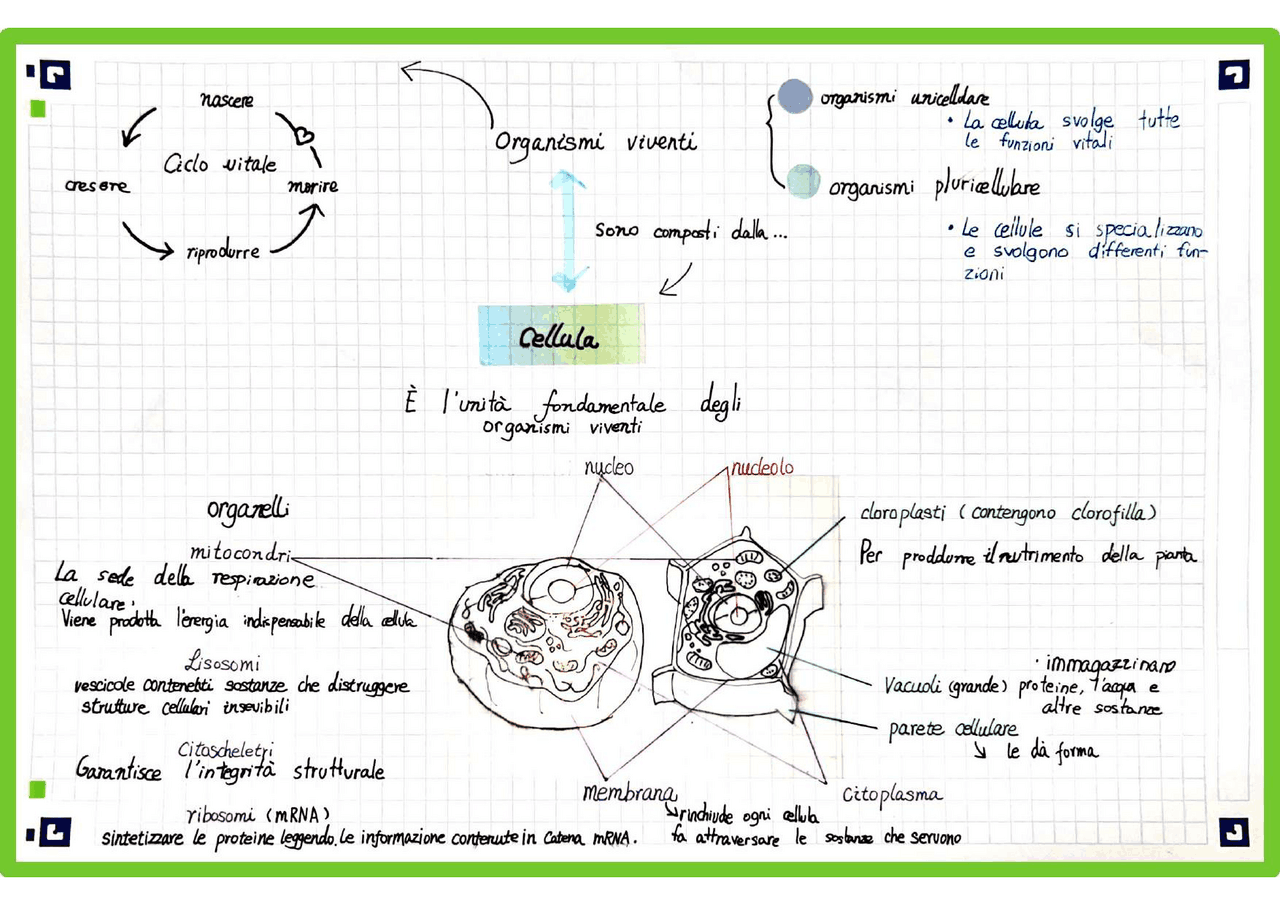 nascere
Ciclo vitale
cresere
morire
riprodurre
Organismi viventi
organismi unicellulare
• La cellula svolge tutte
le funzioni vitali
organismi pluricellulare
• Le cellule si specializzano
e svolgono differenti fun-
zioni
Sono composti dalla...
Cellula
È l'unità fondamentale degli
organismi viventi
nucleo
nucleolo
organelli
mitocondri
La sede della respirazione
cellulare.
Viene prodotta l'energia indispensabile della cellula
Lisosomi
vescicole contenenti sostanze che distruggere
strutture cellulari inservibili
Citoscheletri
Garantisce l'integrità strutturale
ribosomi (mRNA)
sintetizzare le proteine leggendo. Le informazione contenute in Catena mRNA.
cloroplasti (contengono clorofilla)
Per proddurre il nutrimento della pianta
• immagazzinano
Vacuoli (grande) proteine, l'acqua e
altre sostanze
parete cellulare
le dà forma
membrana
rinchiude ogni cellula
fa attraversare le sostanze che servono
Citoplasma